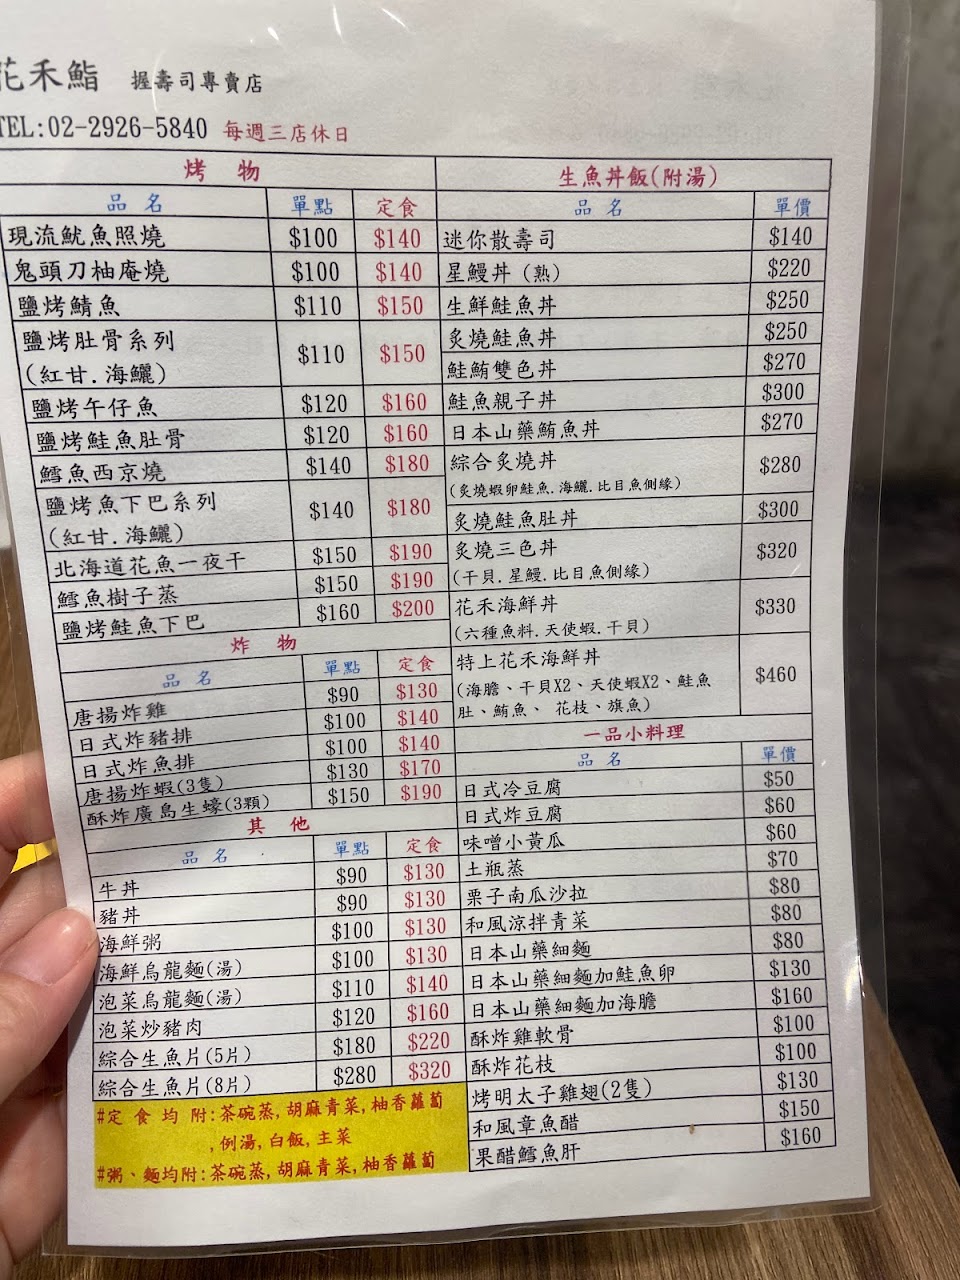 花禾鮨 握壽司專賣店
TEL:02-2926-5840 每週三店休日
烤物
品名 單點 定食
現流魷魚照燒 $100 $140
鬼頭刀柚庵燒 $100 $140
鹽烤鯖魚 $110 $150
鹽烤肚骨系列
(紅甘.海鱺) $110 $150
鹽烤午仔魚 $120 $160
鹽烤鮭魚肚骨 $120 $160
鱈魚西京燒 $140 $180
鹽烤魚下巴系列
(紅甘.海鱺) $140 $180
北海道花魚一夜干 $150 $190
鱈魚樹子蒸 $150 $190
鹽烤鮭魚下巴 $160 $200
炸物
品名 單點 定食
唐揚炸雞 $90 $130
日式炸豬排 $100 $140
日式炸魚排 $100 $140
唐揚炸蝦(3隻) $130 $170
酥炸廣島生蠔(3顆) $150 $190
其他
品名 單點 定食
牛丼 $90 $130
豬丼 $90 $130
海鮮粥 $100 $130
海鮮烏龍麵(湯) $100 $130
泡菜烏龍麵(湯) $110 $140
泡菜炒豬肉 $120 $160
綜合生魚片(5片) $180 $220
綜合生魚片(8片) $280 $320
#定食均附:茶碗蒸,胡麻青菜,柚香蘿蔔
,例湯,白飯,主菜
#粥、麵均附:茶碗蒸,胡麻青菜,柚香蘿蔔
生魚丼飯(附湯)
品名 單價
迷你散壽司 $140
星鰻丼(熟) $220
生鮮鮭魚丼 $250
炙燒鮭魚丼 $250
鮭鮪雙色丼 $270
鮭魚親子丼 $300
日本山藥鮪魚丼 $270
綜合炙燒丼
(炙燒蝦卵鮭魚.海鱺.比目魚側緣) $280
炙燒鮭魚肚丼 $300
炙燒三色丼
(干貝.星鰻.比目魚側緣) $320
花禾海鮮丼
(六種魚料.天使蝦.干貝) $330
特上花禾海鮮丼
(海膽、干貝X2、天使蝦X2、鮭魚
肚、鮪魚、花枝、旗魚) $460
一品小料理
品名 單價
日式冷豆腐 $50
日式炸豆腐 $60
味噌小黃瓜 $60
土瓶蒸 $70
栗子南瓜沙拉 $80
和風涼拌青菜 $80
日本山藥細麵 $80
日本山藥細麵加鮭魚卵 $130
日本山藥細麵加海膽 $160
酥炸雞軟骨 $100
酥炸花枝 $100
烤明太子雞翅(2隻) $130
和風章魚醋 $150
果醋鱈魚肝 $160